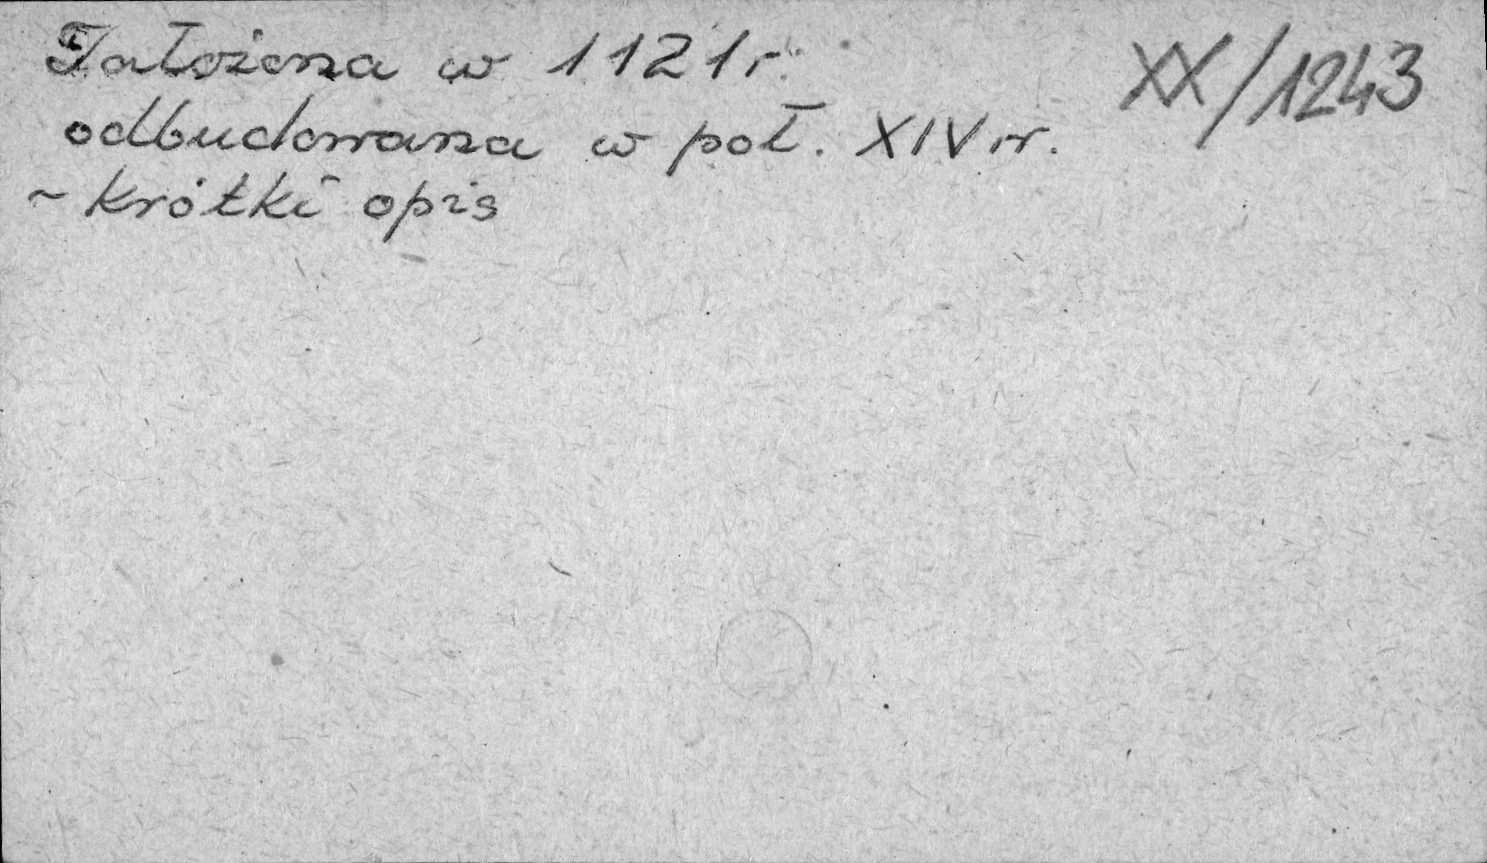 Założona w 1121 r.
XX/1243
odbudowana w poł. XIV w.
~ krótki opis